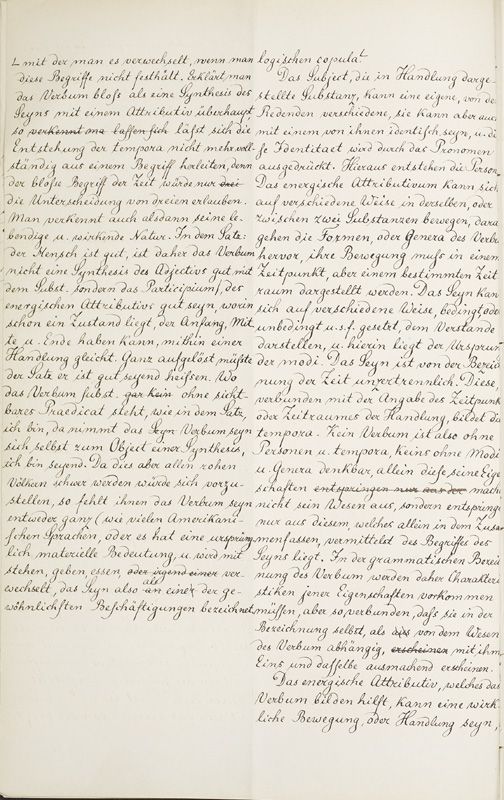 mit der man es verwechselt, wenn man
diese Begriffe nicht festhält. Erklärt man
das Verbum blofs als eine Synthesis des
Seyns mit einem Attributiv überhaupt
so verkennt man lassen sich läfst sich die
Entstehung der tempora nicht mehr voll-
ständig aus einem Begriff herleiten, denn
der blofse Begriff der Zeit würde nur drei
die Unterscheidung von dreien erlauben.
Man verkennt auch alsdann seine le-
bendige u. wirkende Natur. In dem Satz:
der Mensch ist gut, ist daher das Verbum
nicht eine Synthesis des Adjectivs gut mit
dem Subst. sondern das Participiums, des
energischen Attributivs gut seyn, worin
schon ein Zustand liegt, der Anfang, Mit-
te u. Ende haben kann, mithin einer
Handlung gleicht. Ganz aufgelöst müfste
der Satz er ist gut seyend heifsen. Wo
das Verbum subst. gar kein ohne sicht-
bares Praedicat steht, wie in dem Satz
ich bin, da nimmt das Seyn Verbum seyn
sich selbst zum Object einer Synthesis,
ich bin seyend. Da dies aber allen rohen
Völkern schwer werden würde sich vorzu-
stellen, so fehlt ihnen das Verbum seyn
entweder ganz (wie vielen Amerikani-
schen Sprachen, oder es hat eine ursprüng-
lich materielle Bedeutung, u. wird mit
stehen, geben, essen, oder irgend einer ver-
wechselt, das Seyn also als an einer der ge-
wöhnlichsten Beschäftigungen bezeichnet
logischen copula
Das Subject, die in Handlung darge-
stellte Substanz, kann eine eigene, von de
Redenden verschiedene, sie kann aber auch
mit einem von ihnen identisch seyn, u. di
se Identitaet wird durch das Pronomen
ausgedrückt. Hieraus entstehen die Person
Das energische Attributivum kann sich
auf verschiedene Weise in derselben, oder
zwischen zwei Substanzen bewegen, dara
gehen die Formen, oder Genera des Verbu
hervor, ihre Bewegung mufs in einem
Zeitpunkt, aber einem bestimmten Zeit
raum dargestellt werden. Das Seyn kan
sich auf verschiedene Weise, bedingt oder
unbedingt u.s.f. gesetzt, dem Verstande
darstellen, u. hierin liegt der Ursprun
der modi. Das Seyn ist von der Bezeich
nung der Zeit unzertrennlich. Diese
verbunden mit der Angabe des Zeitpunk
oder Zeitraumes der Handlung, bildet di
tempora. Kein Verbum ist also ohne
Personen u. tempora, keins ohne Modi
u. Genera denkbar, allein diese seine Eige
schaften entspringen nur aus der mach
nicht sein Wesen aus, sondern entspringe
nur aus diesem, welches allein in dem Zusa
menfassen, vermittelst des Begriffes des
Seyns liegt. In der grammatischen Bezeich
nung des Verbum werden daher Charakteri
stiken jener Eigenschaften vorkommen
müssen, aber so verbunden, dafs sie in der
Bezeichnung selbst, als aus von dem Wesen
des Verbum abhängig, erscheinen mit ihm
Eins und dasselbe ausmachend erscheinen.
Das energische Attributiv, welches das
Verbum bilden hilft, kann eine wirk-
liche Bewegung, oder Handlung seyn,